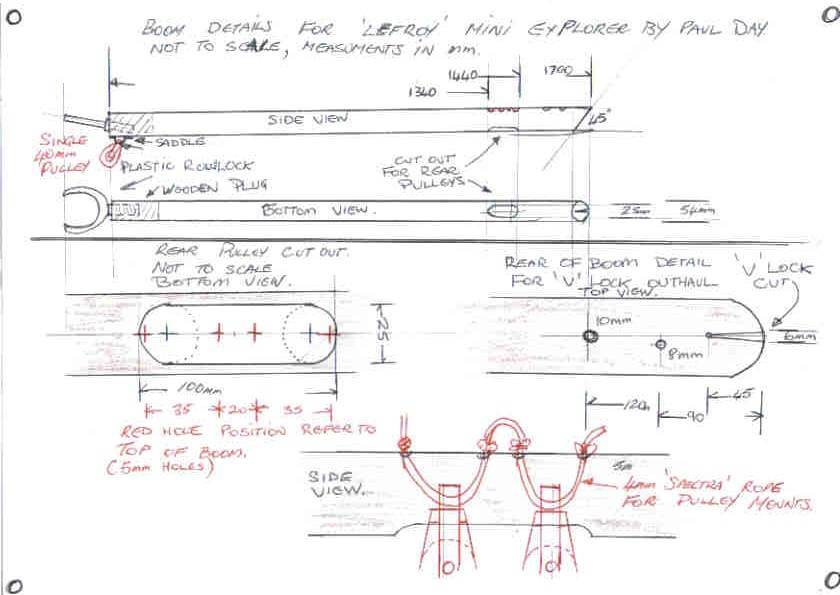 BOOM DETAILS FOR 'LEFROY' MINI EXPLORER BY PAUL DAY
NOT TO SCALE, MEASUMENTS IN mm.
1440
1340
SIDE VIEW
45°
SINGLE
40mm
PULLEY
SADDLE
CUT OUT
FOR REAR
PULLEYS
PLASTIC ROWLOCK
WOODEN PLUG
BOTTOM VIEW.
25mm
54mm
REAR PULLEY CUT OUT.
NOT TO SCALE
BOTTOM VIEW.
REAR OF BOOM DETAIL
FOR 'V' LOCK OUTHAUL
TOP VIEW.
'V' LOCK
CUT
25
10mm
8mm
6mm
100mm
35 20 35
120
90
45
RED HOLE POSITION REFER TO
TOP OF BOOM.
(5mm HOLES)
SIDE
VIEW.
4mm 'SPECTRA' ROPE
FOR PULLEY MOUNTS.